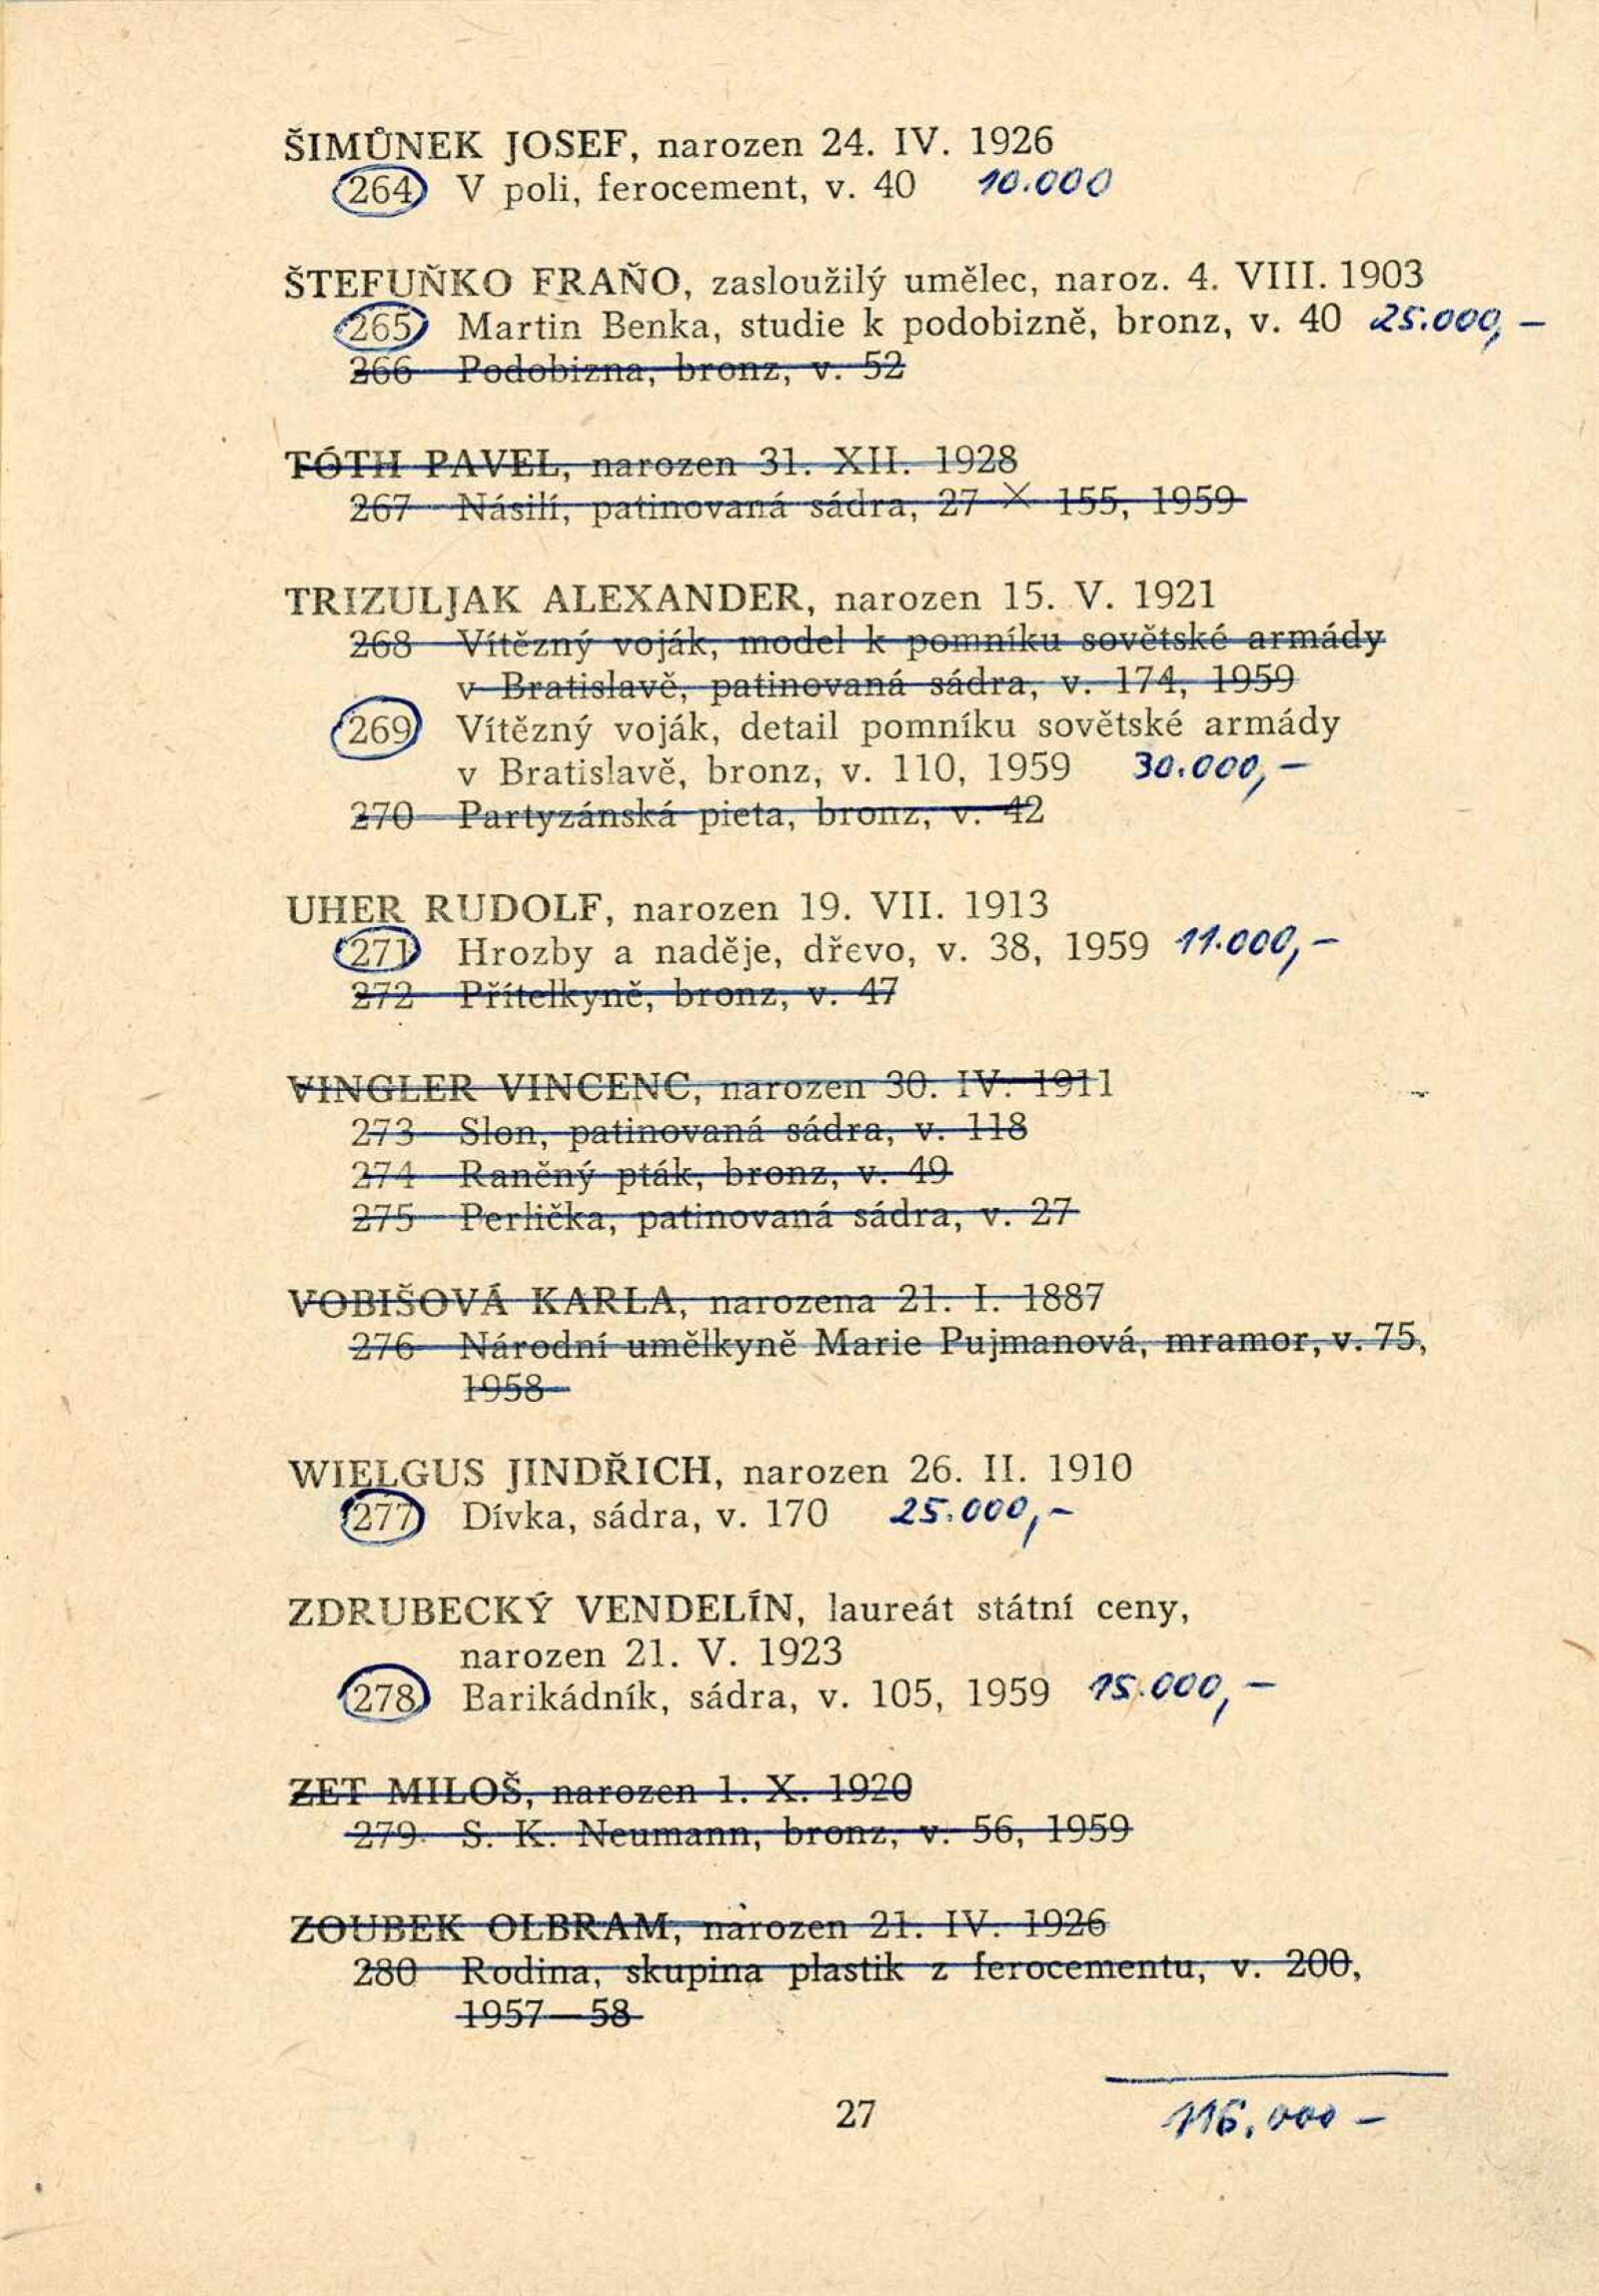 ŠIMŮNEK JOSEF, narozen 24. IV. 1926
264 V poli, ferocement, v. 40 10.000
ŠTEFUŇKO FRAŇO, zasloužilý umělec, naroz. 4. VIII. 1903
265 Martin Benka, studie k podobizně, bronz, v. 40 25.000,—
266 Podobizna, bronz, v. 52
TÓTH PAVEL, narozen 31. XII. 1928
267 Násilí, patinovaná sádra, 27 × 155, 1959
TRIZULJAK ALEXANDER, narozen 15. V. 1921
268 Vítězný voják, model k pomníku sovětské armády
v Bratislavě, patinovaná sádra, v. 174, 1959
269 Vítězný voják, detail pomníku sovětské armády
v Bratislavě, bronz, v. 110, 1959 30.000,—
270 Partyzánská pieta, bronz, v. 42
UHER RUDOLF, narozen 19. VII. 1913
271 Hrozby a naděje, dřevo, v. 38, 1959 11.000,—
272 Přítelkyně, bronz, v. 47
VINGLER VINCENC, narozen 30. IV. 1911
273 Slon, patinovaná sádra, v. 118
274 Raněný pták, bronz, v. 49
275 Perlička, patinovaná sádra, v. 27
VOBIŠOVÁ KARLA, narozena 21. I. 1887
276 Národní umělkyně Marie Pujmanová, mramor, v. 75,
1958
WIELGUS JINDŘICH, narozen 26. II. 1910
277 Dívka, sádra, v. 170 25.000,—
ZDRUBECKÝ VENDELÍN, laureát státní ceny,
narozen 21. V. 1923
278 Barikádník, sádra, v. 105, 1959 15.000,—
ZET MILOŠ, narozen 1. X. 1920
279 S. K. Neumann, bronz, v. 56, 1959
ZOUBEK OLBRAM, narozen 21. IV. 1926
280 Rodina, skupina plastik z ferocementu, v. 200,
1957—58
27
116.000 —